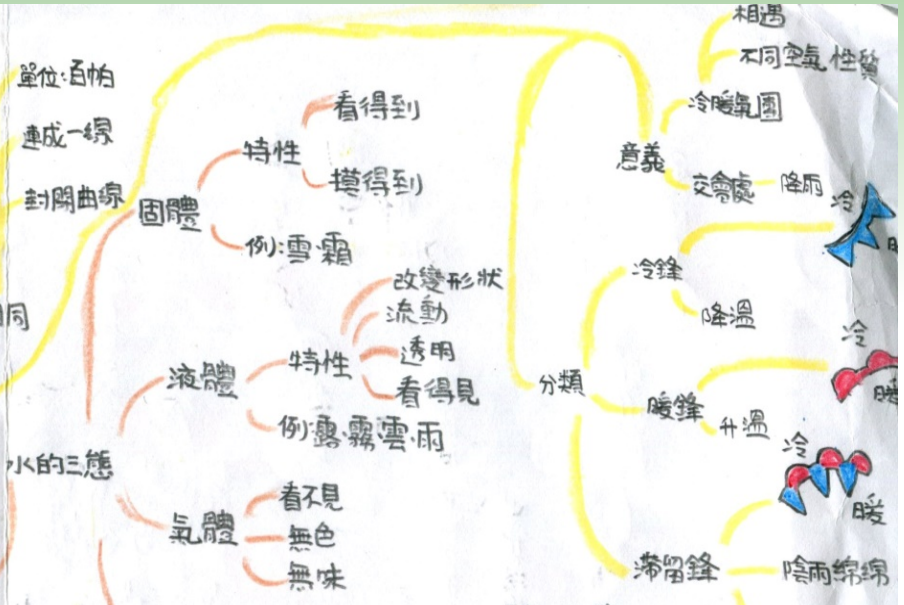 單位:百帕
連成一線
封閉曲線
同
水的三態
固體
特性
看得到
摸得到
例:雪.霜
液體
特性
改變形狀
流動
透明
看得見
例:露.霧.雲.雨
氣體
看不見
無色
無味
意義
相遇
不同空氣性質
冷暖氣團
交會處
降雨
分類
冷鋒
冷
降溫
暖鋒
冷
暖
升溫
滯留鋒
冷
暖
陰雨綿綿